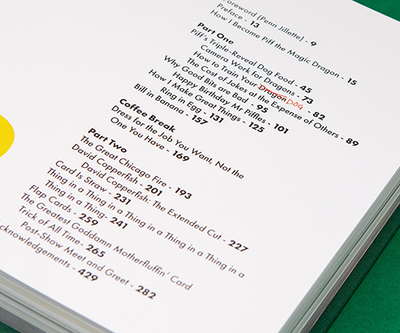 oreword [Penn Jillette] - 9
Preface - 13
How I Become Piff the Magic Dragon - 15
Part One
Piff's Triple-Reveal Dog Food - 45
Camera Work for Dragons - 73
How to Train Your Dragon DOG - 82
The Cost of Jokes at the Expense of Others - 89
Why Good Bits are Bad - 95
Happy Birthday Mr Piffles - 101
How I Make Great Things - 125
Ring in Egg - 131
Bill in Banana - 157
Coffee Break
Dress for the Job You Want. Not the
One You Have - 169
Part Two
The Great Chicago Fire - 193
David Copperfish - 201
David Copperfish: The Extended Cut - 227
Card Is Straw - 231
Thing in a Thing in a Thing in a Thing in a Thing in a
Thing in a Thing- 241
Flap Cards - 259
The Greatest Goddamn Motherfluffin' Card
Trick of All Time - 265
Post-Show Meet and Greet - 282
cknowledgements - 429